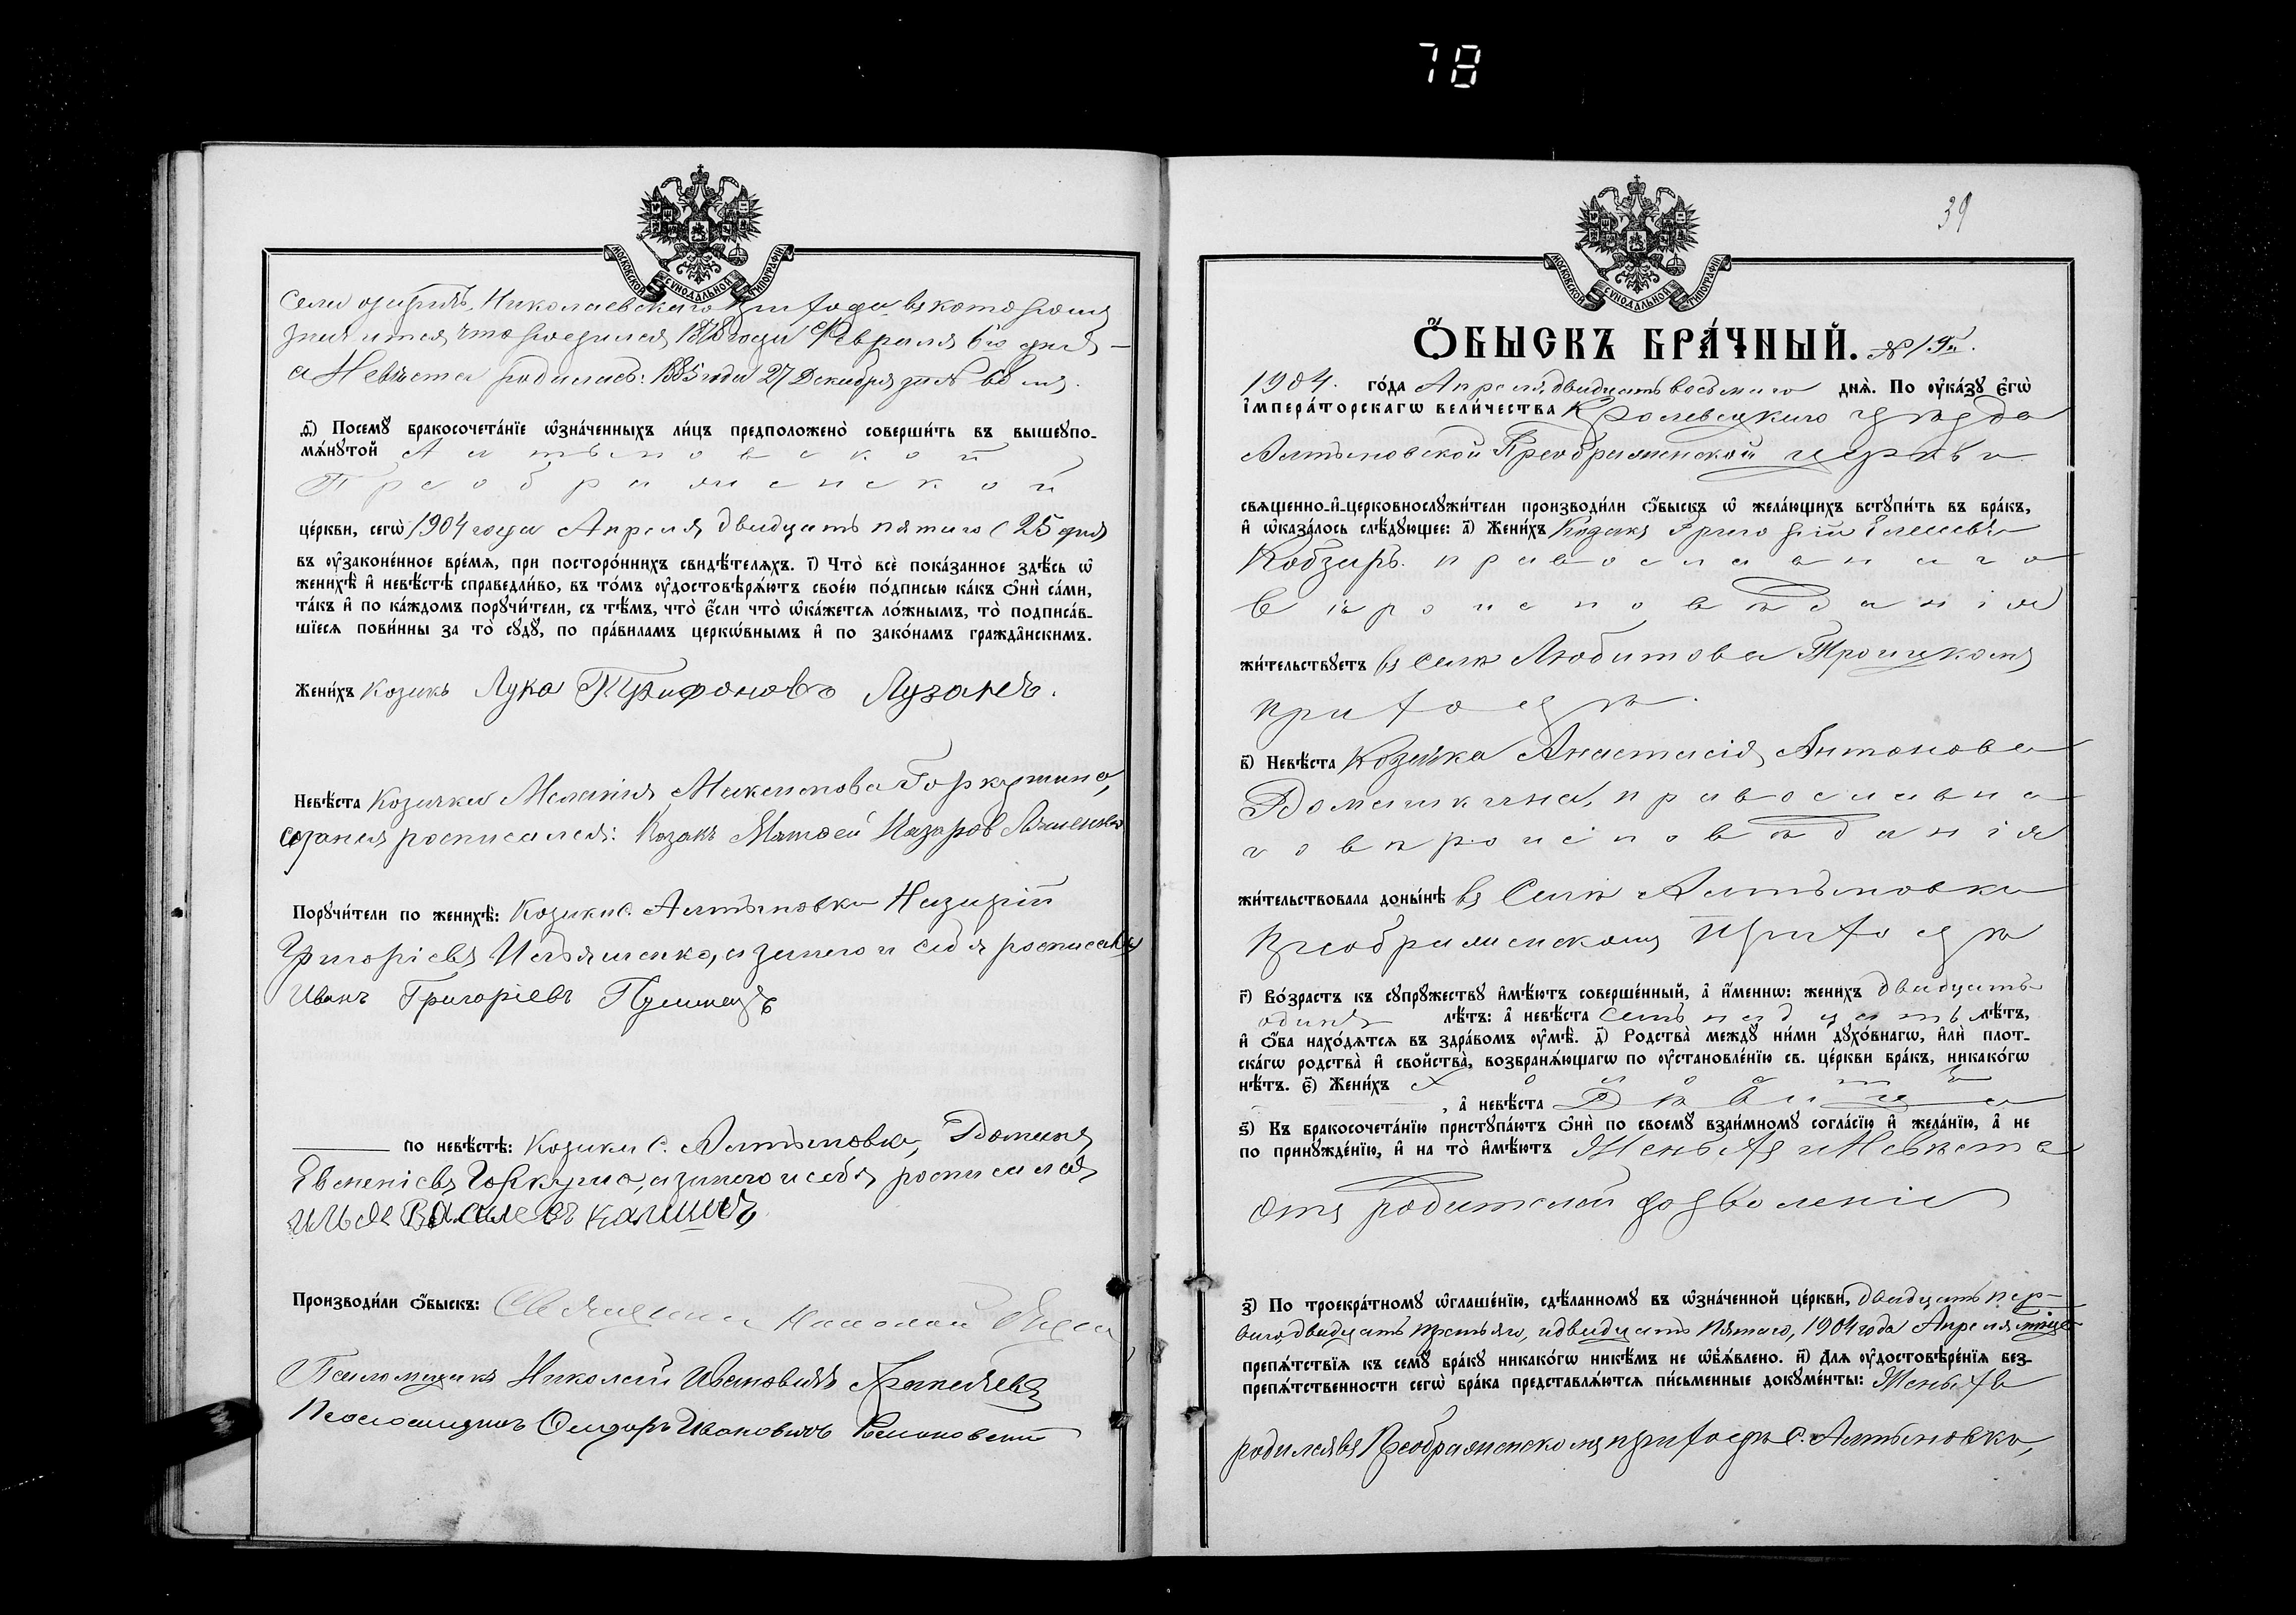 78
МОСКОВСКОЙ СУНОДАЛЬНОЙ ТИПОГРАФІИ
Николаевскаго прихода въ которомъ
что родился 1878 года Февраля 6го дня
а Невѣста родилась: 1885 года 27 Декабря за № 68
д҃) Посемꙋ бракосочета́нїе ѡ҆зна́ченныхъ ли́цъ предположено̀ соверши́ть въ вышеꙋпо-
мѧ́нꙋтой Алтыновской
Преображенской
це́ркви, сегѡ̀ 1904 года Апреля двадцать пятаго (25 дня)
въ ᲂу҆зако́ненное вре́мѧ, при посторо́ннихъ свидѣ́телѧхъ. і҃) Что̀ всѐ пока́занное здѣ́сь ѡ҆
женихѣ̀ и҆ невѣ́стѣ справедли́во, въ то́мъ ᲂу҆достовѣрѧ́ютъ свое́ю по́дписью ка́къ ѻ҆нѝ са́ми,
та́къ и҆ по ка́ждомъ порꙋчи́тели, съ тѣ́мъ, что̀ є҆́сли что̀ ѡ҆ка́жетсѧ ло́жнымъ, то̀ подписа́в-
шїесѧ пови́нны за то̀ сꙋдꙋ̀, по пра́виламъ церкѡ́внымъ и҆ по зако́намъ гражда̑нскимъ.
Жени́хъ Козакъ Лука Трифоновъ Лузанъ.
Невѣ́ста Козачка Меланія Максимова Горкушина,
росписался: Козакъ Матвей Назаров
Порꙋчи́тели по женихѣ̀: Козаки с. Алтыновки Назарій
Григоріевъ Ильяшенко, а за него и себя росписался
Иванъ Григоріевъ
по невѣ́стѣ: Козаки с. Алтыновки, Доменъ
Евменіевъ Горкуша, а за него и себя росписался
Илья Василевъ
Производи́ли ѻ҆́быскъ: Священникъ Николай
Псаломщикъ Николай Ивановичъ
Псаломщикъ Ѳедоръ Ивановичъ Романовскій
39
МОСКОВСКОЙ СУНОДАЛЬНОЙ ТИПОГРАФІИ
Ѻ҆́БЫСКЪ БРА́ЧНЫЙ. № 19й.
1904. го́да Апреля, двадцать восьмаго днѧ̀. По ᲂу҆ка́зꙋ є҆гѡ̀
і҆мпера́торскагѡ вели́чества Кролевецкаго уѣзда
Алтыновской Преображенской церкви
свѧщенно-и҆-церковнослꙋжи́тели производи́ли ѻ҆́быскъ ѡ҆ жела́ющихъ встꙋпи́ть въ бра́къ,
и҆ ѡ҆каза́лось слѣ́дꙋющее: а҃) Жени́хъ Козакъ Григорій
Кобзарь. православнаго
вѣроисповѣданія
жи́тельствꙋетъ въ селѣ Любитова Троицкомъ
приходѣ.
в҃) Невѣ́ста Козачка Анастасія Антонова
православна
го вѣроисповѣданія
жи́тельствовала доны́нѣ въ Селѣ Алтыновки
Преображенскомъ приходѣ
г҃) Во́зрастъ къ сꙋпрꙋжествꙋ и҆мѣ́ютъ соверше́нный, а҆ и҆́меннѡ: жени́хъ двадцать
одинъ лѣ́тъ: а҆ невѣ́ста семнадцать лѣ́тъ,
и҆ ѻ҆́ба нахо́дѧтсѧ въ здра́вомъ ᲂу҆мѣ̀. д҃) Родства̀ междꙋ̀ ни́ми дꙋхо́внагѡ, и҆лѝ плот-
ска́гѡ родства̀ и҆ сво́йства̀, возбранѧ́ющагѡ по ᲂу҆становле́нїю св. це́ркви бра́къ, никако́гѡ
нѣ́тъ. є҃) Жени́хъ Холостъ
, а҆ невѣ́ста Дѣвица
ѕ҃) Къ бракосочета́нїю пристꙋпа́ютъ ѻ҆нѝ по своемꙋ̀ взаи́мномꙋ согла́сїю и҆ жела́нїю, а҆ не
по принꙋжде́нїю, и҆ на то̀ и҆мѣ́ютъ Женихъ и Невѣста
отъ родителей дозволеніе
з҃) По троекра́тномꙋ ѡ҆глаше́нїю, сдѣ́ланномꙋ въ ѡ҆зна́ченной це́ркви, двадцать пер-
ваго, двадцать третьяго, и двадцать пятаго, 1904 года Апреля
препѧ́тствїѧ къ семꙋ̀ бра́кꙋ никако́гѡ никѣ́мъ не ѡ҆б̾ѧ́влено. и҃) Длѧ ᲂу҆достовѣре́нїѧ без-
препѧ́тственности сегѡ̀ бра́ка представлѧ́ютсѧ пи́сьменные докꙋме́нты: Женихъ
родился въ Преображенскомъ приходѣ с. Алтыновки,